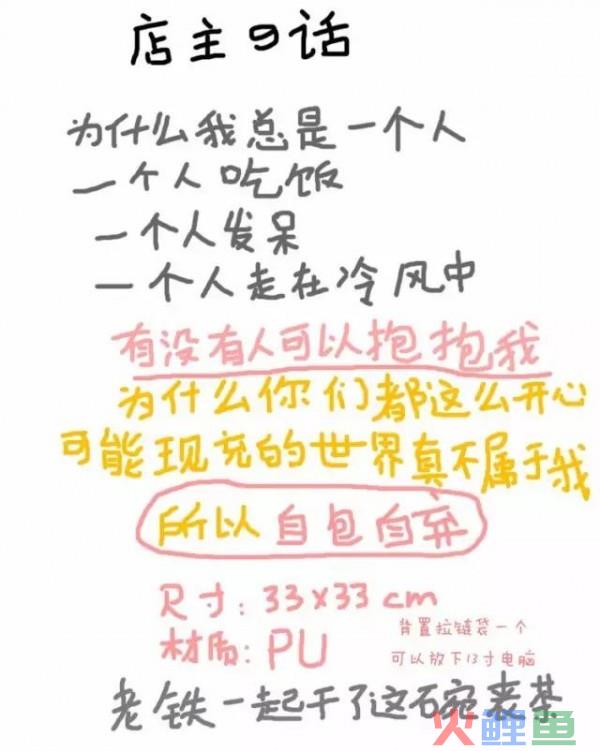 店主の话
为什么我总是一个人
一个人吃饭
一个人发呆
一个人走在冷风中
有没有人可以抱抱我
为什么你们都这么开心
可能现充的世界真不属于我
所以自包自弃
尺寸:33x33cm
材质:PU
背置拉链袋一个
可以放下13寸电脑
老铁一起干了这碗丧茶
火鲤鱼